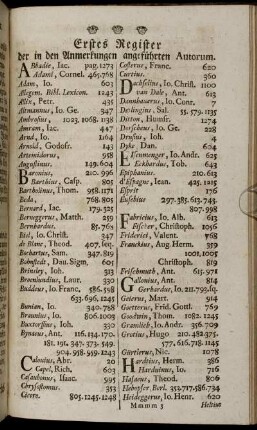 Erstes Register
der in den Anmerkungen angeführten Autorum.
Abbadie, Jac. pag. 1273
Adami, Cornel. 465.768
Adam, Jo. 603
Allegem. Bibl. Lexicon. 1243
Alix, Petr. 435
Altmannus, Jo. Ge. 347
Ambrosius, 1023. 1068. 1138
Amram, Jac. 447
Arnd, Jo. 1164
Arnold, Godofr. 143
Artemidorus, 958
Augustinus, 149.604
Baronius, 210.996
Barthius, Casp. 805
Bartholinus, Thom. 958.1171
Beda, 768.805
Bernard, Jac. 179.525
Berneggerus, Matth. 259
Bernhardus, 85.769
Bêd, Jo. Christ. 347
de Blaine, Theod. 407.
Bochartus, Sam. 347.819
Bomstedt, Dau. Sigm. 605
Brinsley, Joh. 313
Buddeus, Jo. Franc. 586.598
633.696.1245
Bunian, Jo. 340.788
Braunius, Jo. 806.1009
Buxtorfius, Jo. 330
Bynaeus, Ant. 116.134.170.
181.191.347.373.549.
904.918.919.1243
Calouius, Abr. 20
Capel, Rich. 603
Casaubonus, Isaac. 595
Chrysostomus, 353
Cicero, 805.1245.1248
Costerus, Franc. 620
Curtius, 360
Dachselius, Jo. Christ. 1100
van Dale, Ant. 613
Dannhauerus, Jo. Conr. 7
Deylingius, Sal. 53.579.1135
Ditton, Humfr. 1274
Dorscheus, Jo. Ge. 228
Drusius, Joh. 4
Dyke, Dan. 604
Eisenmenger, Jo. Andr. 625
Eckhardus, Tob. 643
Epiphanius. 210.613
d'Espagne, Jean. 425.1215
Esprit 176
Eusebius 297.385.613.745.
807.998
Fabricius, Jo. Alb. 613
Fischer, Christoph. 1056
Friderici, Valent. 768
Franckius, Aug. Herm. 359
1001.1005
Christoph. 819
Frischmuth, Ant. 615.971
Gallonius, Ant. 814
Gerhardus, Jo. 211.799.
Geierus, Mart. 914
Goetterus, Frid. Gottl. 769
Goodwin, Thom. 1082.1245
Gramlich, Jo. Andr. 356.709
Grotius, Hugo 210.484.575.
577.616.718.1145
Gürtlerus, Nic. 1078
Hardtius, Herm. 386
Harduinus, Jo. 716
Hasaeus, Theod. 806
Heideggerus, Jo. Henr. 620
Mmmm 3
Helvius